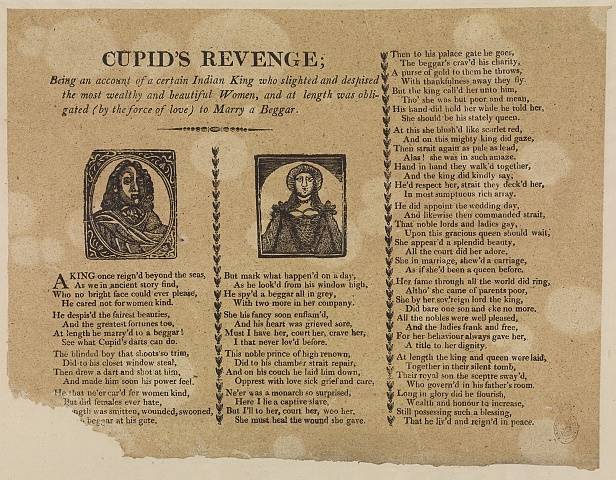 CUPID'S REVENGE;
Being an account of a certain Indian King who slighted and despised
the most wealthy and beautiful Women, and at length was obli-
gated (by the force of love) to Marry a Beggar.
A KING once reign'd beyond the seas,
As we in ancient story find,
Who no bright face could ever please,
He cared not for women kind.
He despis'd the fairest beauties,
And the greatest fortunes too,
At length he marry'd to a beggar!
See what Cupid's darts can do.
The blinded boy that shoots so trim,
Did to his closet window steal,
Then drew a dart and shot at him,
And made him soon his power feel.
He that ne'er car'd for women kind,
But did females ever hate,
length was smitten, wounded, swooned,
beggar at his gate.
But mark what happen'd on a day,
As he look'd from his window high,
He spy'd a beggar all in grey,
With two more in her company.
She his fancy soon enflam'd,
And his heart was grieved sore.
Must I have her, court her, crave her,
I that never lov'd before.
This noble prince of high renown,
Did to his chamber strait repair,
And on his couch he laid him down,
Opprest with love sick grief and care,
Ne'er was a monarch so surprised,
Here I lie a captive slave,
But I'll to her, court her, woo her,
She must heal the wound she gave.
Then to his palace gate he goes,
The beggar's crav'd his charity,
A purse of gold to them he throws,
With thankfulness away they fly.
But the king call'd her unto him,
Tho' she was but poor and mean,
His hand did hold her while he told her,
She should be his stately queen.
At this she blush'd like scarlet red,
And on this mighty king did gaze,
Then strait again as pale as lead,
Alas! she was in such amaze.
Hand in hand they walk'd together,
And the king did kindly say,
He'd respect her, strait they deck'd her,
In most sumptuous rich array.
He did appoint the wedding day,
And likewise then commanded strait,
That noble lords and ladies gay,
Upon this gracious queen should wait,
She appear'd a splendid beauty,
All the court did her adore,
She in marriage, shew'd a carriage,
As if she'd been a queen before.
Her fame through all the world did ring,
Altho' she came of parents poor,
She by her sov'reign lord the king,
Did bare one son and eke no more.
All the nobles were well pleased,
And the ladies frank and free,
For her behaviour always gave her,
A title to her dignity.
At length the king and queen were laid,
Together in their silent tomb,
Their royal son the sceptre sway'd,
Who govern'd in his father's room.
Long in glory did he flourish,
Wealth and honour to increase,
Still possessing such a blessing,
That he liv'd and reign'd in peace.